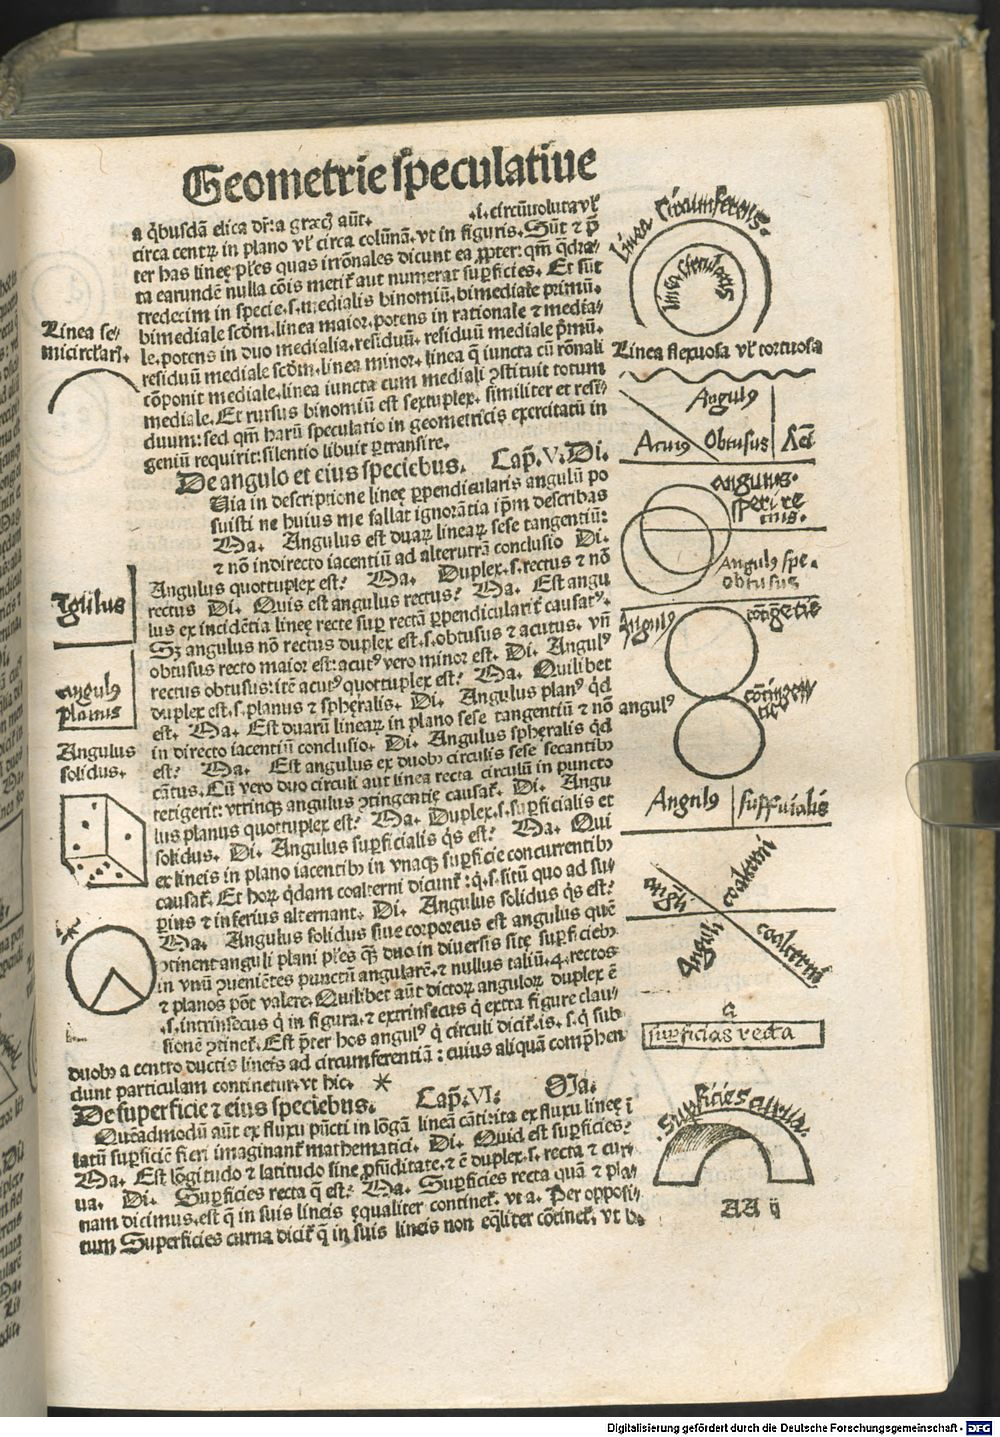 Geometrie speculatiue
a q̃busdã elica dr̃: a græcꝭ aũt. .i. circũuoluta vľ
circa centꝝ in plano vľ circa colũnã. vt in figuris. Sũt ⁊ p̃
ter has lineę ples quas irrõnales dicunt ea ꝓpter: qm̃ q̃dra-
ta earundẽ nulla cõis metiť aut numerat suꝑficies. Et sũt
tredecim in specie. s. medialis binomiũ. bimediale primũ.
bimediale scðm. linea maior. potens in rationale ⁊ media-
le. potens in duo medialia. residuũ. residuũ mediale p̃mũ.
residuũ mediale scðm. linea minor. linea q̃ iuncta cũ rõnali
cõponit mediale. linea iuncta cum mediali ꝯstituit totum
mediale. Et rursus binomiũ est sextuplex. similiter et resi-
duum: sed qm̃ harũ speculatio in geometricis exercitatũ in
geniũ requirit: silentio libuit ꝑtransire.
De angulo et eius speciebus. Cap̃. V. Di.
Uia in descriptione lineę ꝑpendicularis angulũ po
suisti ne huius me fallat ignorãtia ip̃m describas
Ma. Angulus est duaꝝ lineaꝝ sese tangentiũ:
⁊ nõ indirecto iacentiũ ad alterutrã conclusio Di.
Angulus quottuplex est? Ma. Duplex. s. rectus ⁊ nõ
rectus Di. Quis est angulus rectus? Ma. Est angu
lus ex incidẽtia lineę recte suꝑ rectã ꝑpendiculariť causatꝰ.
Sꝫ angulus nõ rectus duplex est. s. obtusus ⁊ acutus. vñ
obtusus recto maior est: acutꝰ vero minor est. Di. Angulꝰ
rectus obtusus: itẽ acutꝰ quottuplex est? Ma. Quilibet
duplex est. s. planus ⁊ sphęralis. Di. Angulus planꝰ q̃d
est. Ma. Est duarũ lineaꝝ in plano sese tangentiũ ⁊ nõ
in directo iacentiũ conclusio. Di. Angulus sphęralis q̃d
est? Ma. Est angulus ex duobꝰ circulis sese secantibꝰ
cãtus. Cũ vero duo circuli aut linea recta circulũ in puncto
tetigerit: vtrinqꝫ angulus ꝯtingentię causať. Di. Angu
lus planus quottuplex est? Ma. Duplex. s. suꝑficialis et
solidus. Di. Angulus suꝑficialis q̃s est? Ma. Qui
ex lineis in plano iacentibꝰ in vnaqꝫ suꝑficie concurrentibꝰ
causať. Et horꝝ q̃dam coalterni dicunť: q. s. sitũ quo ad su-
ꝑius ⁊ inferius alternant. Di. Angulus solidus q̃s est?
Ma. Angulus solidus siue corporeus est angulus quẽ
ꝯtinent anguli plani ples qꝫ duo in diuersis sitę suꝑficiebꝰ
in vnũ ꝯuenientes punctũ angularẽ. ⁊ nullus taliũ. 4. rectos
⁊ planos põt valere. Quilibet aũt dictoꝝ anguloꝝ duplex ẽ
.s. intrinsecus q̃ in figura. ⁊ extrinsecus q̃ extra figure clau-
sionẽ ꝯtineť. Est p̃ter hos angulꝰ q̃ circuli diciť. is. s. q̃ sub
duobꝰ a centro ductis lineis ad circumferentiã: cuius aliquã comp̃hen
dunt particulam continetur. vt hic. *
De superficie ⁊ eius speciebus. Cap̃. VI. Ma.
Quẽadmodũ aũt ex fluxu pũcti in lõgã lineã cãti: ita ex fluxu lineę ĩ
latũ suꝑficiẽ fieri imaginanť mathematici. Di. Quid est suꝑficies?
Ma. Est lõgitudo ⁊ latitudo sine ꝓfũditate. ⁊ ẽ duplex. s. recta ⁊ cur-
ua. Di. Suꝑficies recta q̃ est? Ma. Suꝑficies recta quã ⁊ pla-
nam dicimus. est q̃ in suis lineis equaliter contineť. vt a. Per opposi-
tum Superficies curua diciť q̃ in suis lineis non eq̃liter cõtineť. vt b.
Linea se-
micircľaris.
Angulꝰ
planus
Angulus
solidus.
Linea circumferens.
linea circularis
Linea flexuosa vľ tortuosa
Angulꝰ
Acutꝰ Obtusus Rectꝰ
Angulꝰ spe.
obtusus
Angulꝰ
angulꝰ
Angulꝰ suꝑficialis
anguli
coalterni
Anguli
coalterni
a
suꝑficies recta
Suꝑficies curua
AA ij
Digitalisierung gefördert durch die Deutsche Forschungsgemeinschaft - DFG